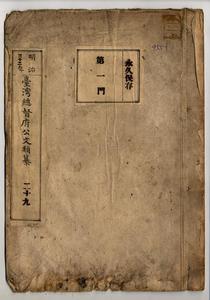 永久保存
第一門
明治
臺灣總督府公文類纂
二十九